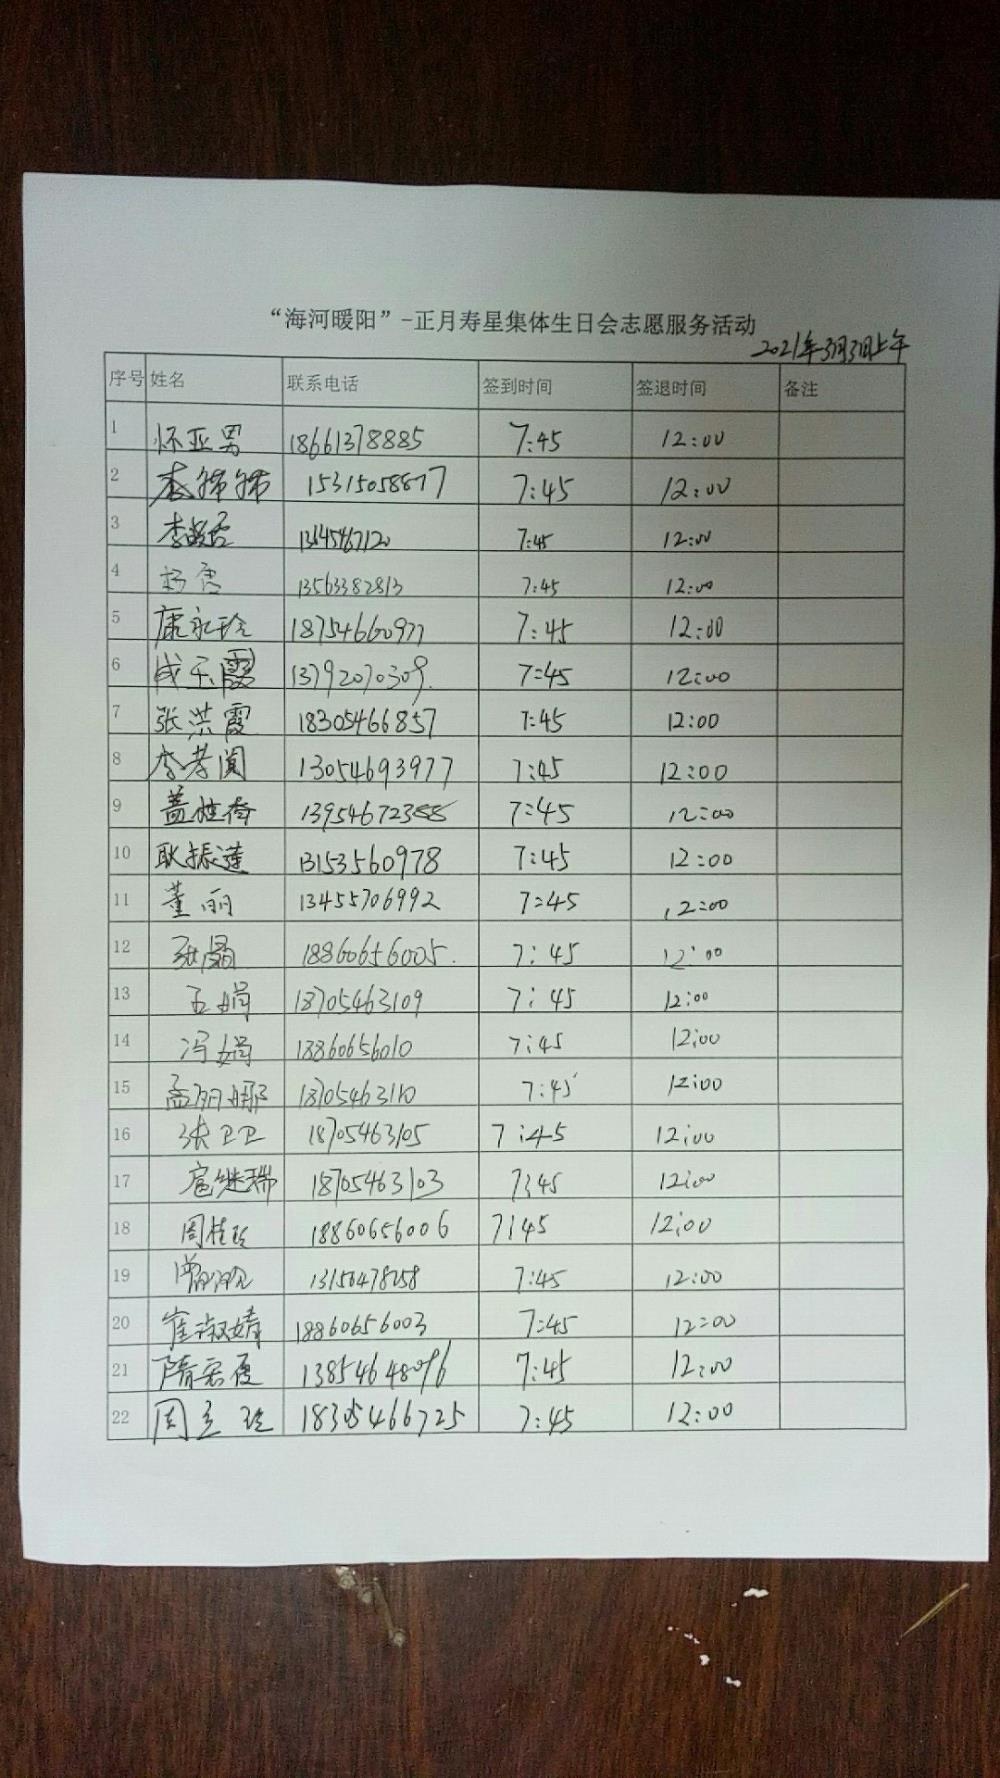 “海河暖阳”-正月寿星集体生日会志愿服务活动
2021年3月3日上午
序号 姓名 联系电话 签到时间 签退时间 备注
1 怀亚男 18661378885 7:45 12:00
2 李希希 15315058877 7:45 12:00
3 李 7:45 12:00
4 杨 13563382813 7:45 12:00
5 康永玲 18754660977 7:45 12:00
6 成玉霞 13792070309. 7:45 12:00
7 张洪霞 18305466857 7:45 12:00
8 李孝阁 13054693977 7:45 12:00
9 盖 13954672388 7:45 12:00
10 耿振莲 13153560978 7:45 12:00
11 董丽 13455706992 7:45 12:00
12 张晶 18860656005. 7:45 12:00
13 王娟 18705463109 7:45 12:00
14 冯娟 18860656010 7:45 12:00
15 孟丽娜 18705463110 7:45 12:00
16 张卫卫 18705463105 7:45 12:00
17 扈继瑞 18705463103 7:45 12:00
18 周桂玲 18860656006 7:45 12:00
19 7:45 12:00
20 崔淑婧 18860656003 7:45 12:00
21 隋宏霞 13854648096 7:45 12:00
22 周立玲 18305466725 7:45 12:00